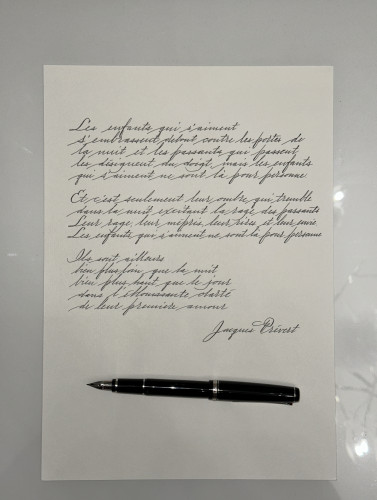 Les enfants qui s'aiment
s'embrassent debout contre les portes de
la nuit et les passants qui passent
les désignent du doigt, mais les enfants
qui s'aiment ne sont là pour personne
Et c'est seulement leur ombre qui tremble
dans la nuit excitant la rage des passants
Leur rage, leur mépris, leur rire et leur envie
Les enfants qui s'aiment ne sont là pour personne
Ils sont ailleurs
bien plus loin que la nuit
bien plus haut que le jour
dans l'éblouissante clarté
de leur première amour
Jacques Prévert